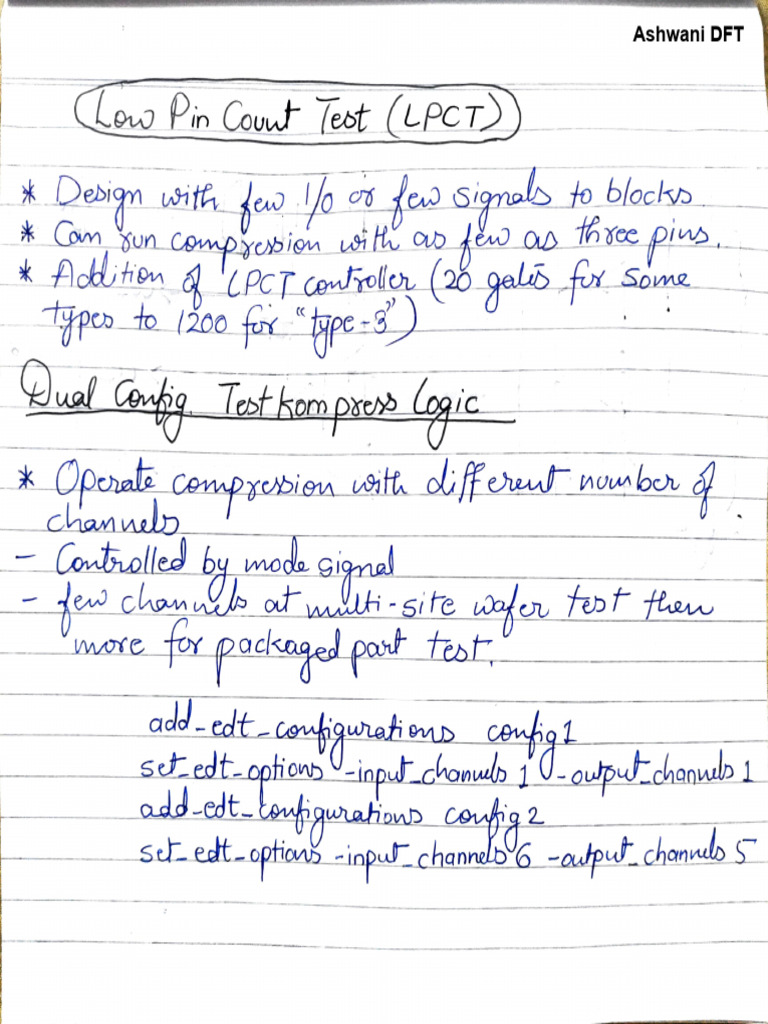 Ashwani DFT
Low Pin Count Test (LPCT)
* Design with few I/O or few signals to blocks.
* Can run compression with as few as three pins.
* Addition of LPCT controller (20 gates for some
types to 1200 for "type-3")
Dual Config. Testkompress Logic
* Operate compression with different number of
channels
- Controlled by mode signal
- few channels at multi-site wafer test then
more for packaged part test.
add_edt_configurations config1
set_edt_options -input_channels 1 -output_channels 1
add_edt_configurations config2
set_edt_options -input_channels 6 -output_channels 5